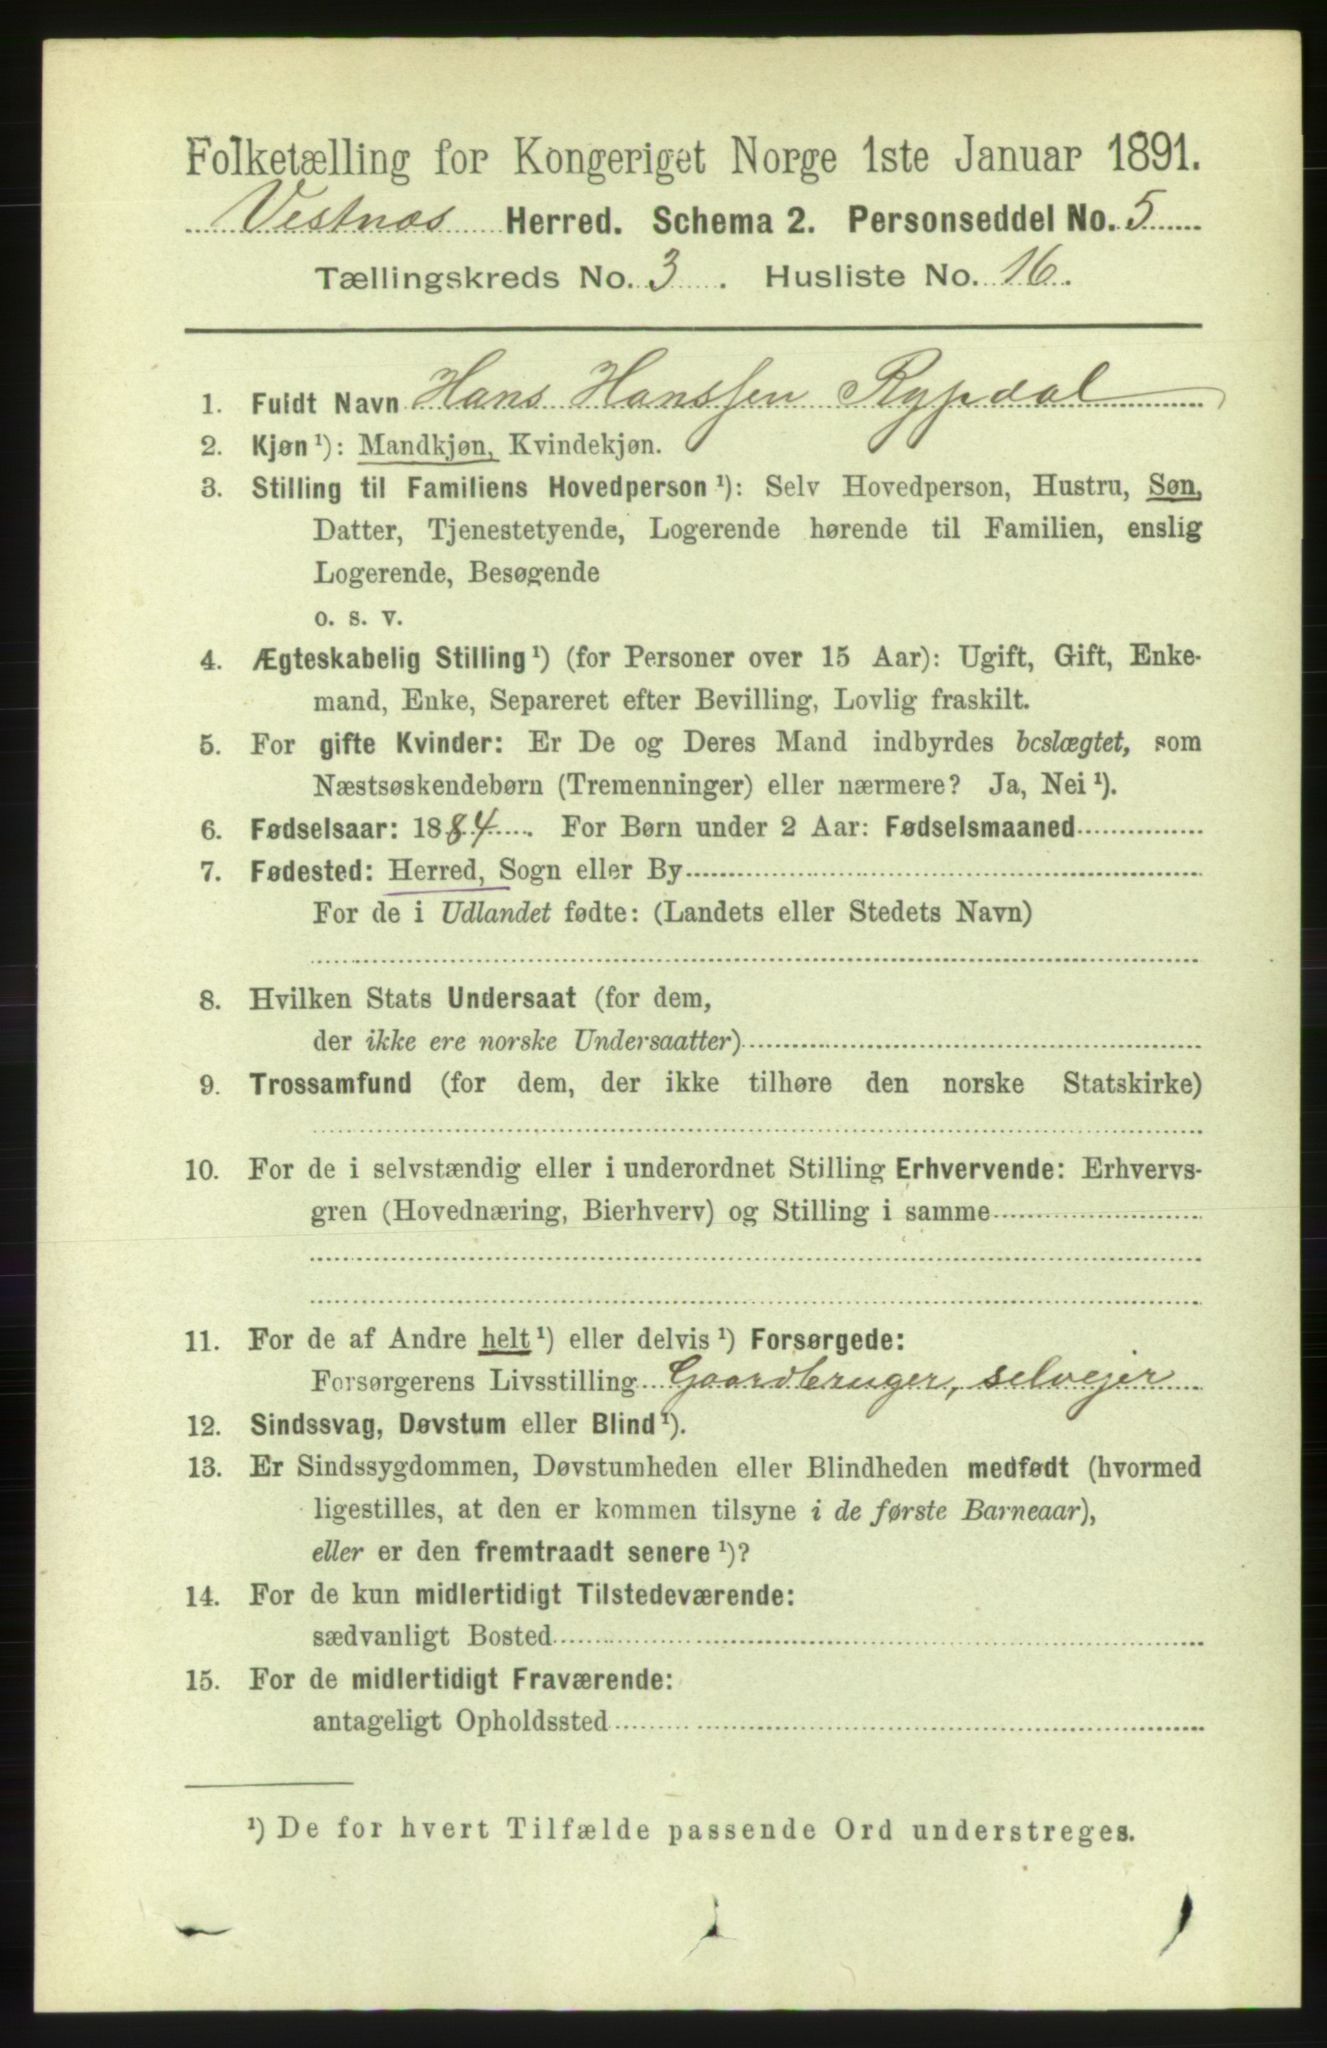 Folketælling for Kongeriget Norge 1ste Januar 1891.
Vestnæs Herred. Schema 2. Personseddel No. 5
Tællingskreds No. 3. Husliste No. 16.
1. Fuldt Navn Hans Hanssen Rypdal
2. Kjøn ¹): Mandkjøn, Kvindekjøn.
3. Stilling til Familiens Hovedperson ¹): Selv Hovedperson, Hustru, Søn,
Datter, Tjenestetyende, Logerende hørende til Familien, enslig
Logerende, Besøgende
o. s. v.
4. Ægteskabelig Stilling ¹) (for Personer over 15 Aar): Ugift, Gift, Enke-
mand, Enke, Separeret efter Bevilling, Lovlig fraskilt.
5. For gifte Kvinder: Er De og Deres Mand indbyrdes beslægtet, som
Næstsøskendebørn (Tremenninger) eller nærmere? Ja, Nei ¹).
6. Fødselsaar: 1884. For Børn under 2 Aar: Fødselsmaaned
7. Fødested: Herred, Sogn eller By
For de i Udlandet fødte: (Landets eller Stedets Navn)
8. Hvilken Stats Undersaat (for dem,
der ikke ere norske Undersaatter)
9. Trossamfund (for dem, der ikke tilhøre den norske Statskirke)
10. For de i selvstændig eller i underordnet Stilling Erhvervende: Erhvervs-
gren (Hovednæring, Bierhverv) og Stilling i samme
11. For de af Andre helt ¹) eller delvis ¹) Forsørgede:
Forsørgerens Livsstilling Gaardbruger, selvejer
12. Sindssvag, Døvstum eller Blind ¹).
13. Er Sindssygdommen, Døvstumheden eller Blindheden medfødt (hvormed
ligestilles, at den er kommen tilsyne i de første Barneaar),
eller er den fremtraadt senere ¹)?
14. For de kun midlertidigt Tilstedeværende:
sædvanligt Bosted
15. For de midlertidigt Fraværende:
antageligt Opholdssted
¹) De for hvert Tilfælde passende Ord understreges.